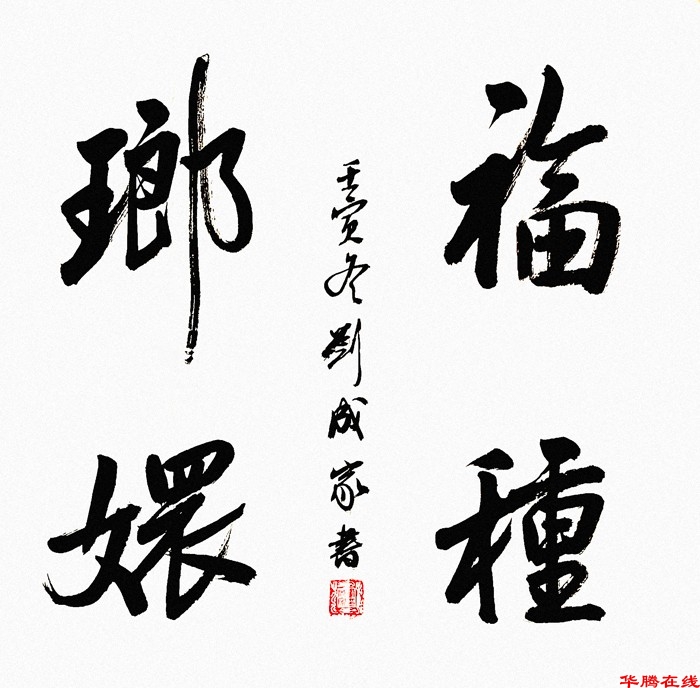 福種
瑯嬛
壬寅冬劉成家書
华腾在线